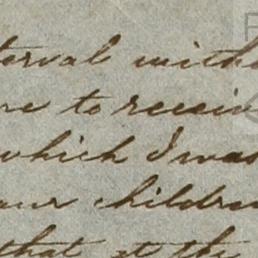 terval with
re to receiv
which I was
our childre
that at the